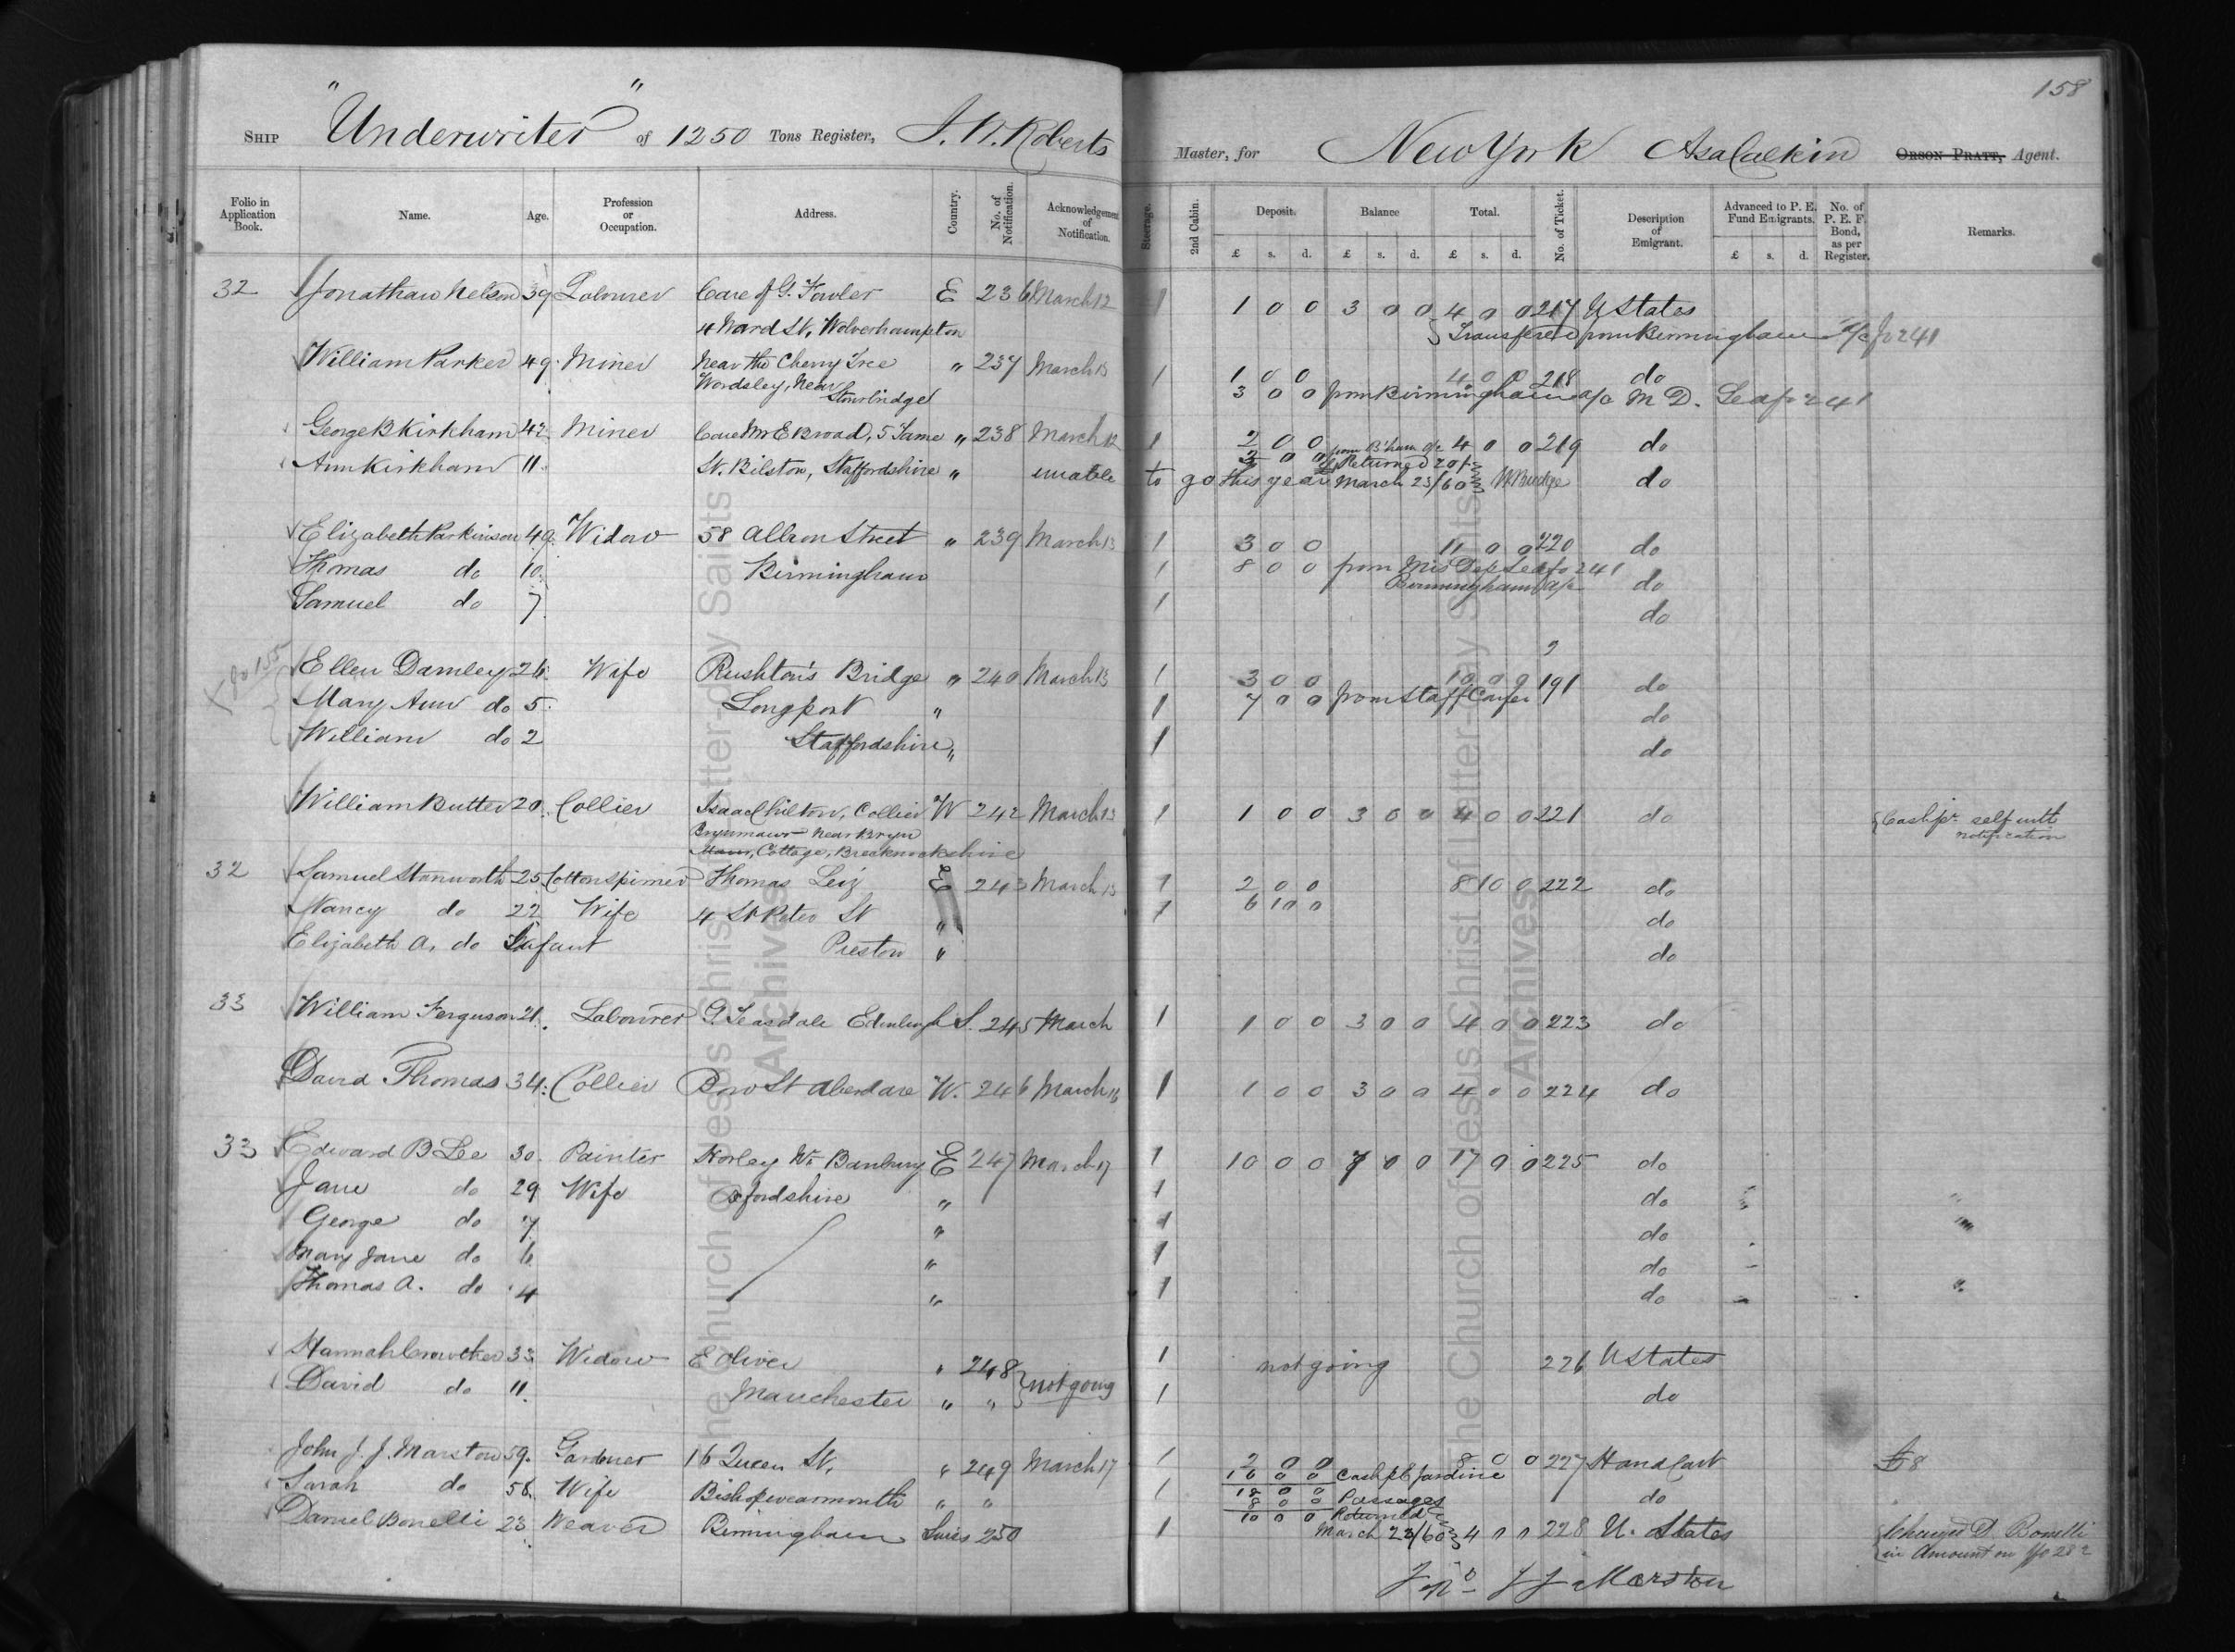 158
" "
SHIP Underwriter of 1250 Tons Register, J. W. Roberts Master, for New York Asa Calkin ORSON PRATT, Agent.
Folio in Application Book. Name. Age. Profession or Occupation. Address. Country. No. of Notification. Acknowledgement of Notification. Steerage. 2nd Cabin. Deposit. Balance Total. No. of Ticket. Description of Emigrant. Advanced to P. E. Fund Emigrants. No. of P. E. F. Bond, as per Register. Remarks.
£ s. d. £ s. d. £ s. d. £ s. d.
32 Jonathan Nelson 39 Labourer Care of G. Fowler E 236 March 12 1 1 0 0 3 0 0 4 0 0 217 U States
4 Ward St, Wolverhampton Transferred from Birmingham a/c fo 241
William Parker 49 Miner Near the Cherry Tree " 237 March 13 1 1 0 0 4 0 0 218 do
Wordsley, Near Stourbridge 3 0 0 from Birmingham a/c M D. Lea fo 241
George B Kirkham 42 Miner Care Mr E Broad, 5 Tame " 238 March 12 1 2 0 0 from B'ham a/c 4 0 0 219 do
2 0 0 Returned 20/-
Ann Kirkham 11 St. Bilston, Staffordshire " unable to go this year March 23/60 W Budge do
Elizabeth Parkinson 49 Widow 58 Allison Street " 239 March 13 1 3 0 0 11 0 0 220 do
Thomas do 10 Birmingham 1 8 0 0 from Mrs Dep Lea fo 241
Birmingham a/c do
Samuel do 7 1 do
fo 155 Ellen Damley 26 Wife Rushton's Bridge " 240 March 13 1 3 0 0 10 0 0 191 do
Mary Ann do 5 Longport " 1 7 0 0 from Staff Confer do
William do 2 Staffordshire " 1 do
William Butter 20 Collier Isaac Chilton, Collier W 242 March 13 1 1 0 0 3 0 0 4 0 0 221 do Cash pr self with notification
Brynmawr near Bryn
Mawr, Cottage, Brecknockshire
32 Samuel Stanworth 25 Cotton Spinner Thomas Leiz E 243 March 13 1 2 0 0 8 10 0 222 do
Nancy do 22 Wife 4 St Peter St " 1 6 10 0 do
Elizabeth A. do Infant Preston " do
33 William Ferguson 21 Labourer G. Teasdale Edinburgh S. 245 March 1 1 0 0 3 0 0 4 0 0 223 do
David Thomas 34 Collier Bow St Aberdare W. 246 March 16 1 1 0 0 3 0 0 4 0 0 224 do
33 Edward B Lee 30 Painter Horley Nr Banbury E 247 March 17 1 10 0 0 7 0 0 17 0 0 225 do
Jane do 29 Wife Oxfordshire " 1 do
George do 7 " 1 do
Mary Jane do 6 " 1 do
Thomas A. do 4 " 1 do
Hannah Crowther 33 Widow E Oliver " 248 not going 1 not going 226 U States
David do 11 Manchester " " 1 do
John J. J. Marston 59 Gardner 16 Queen St, " 249 March 17 1 2 0 0 8 0 0 227 Hand Cart £8
16 0 0 Cash pr Jardine
Sarah do 58 Wife Bishopwearmouth " " 1 18 0 0 do
8 0 0 Passages
10 0 0 Returned
Daniel Bonelli 23 Weaver Birmingham Swiss 250 1 March 23/60 4 0 0 228 U. States Charged D. Bonelli
in Amount on fo 282
J J Marston
The Church of Jesus Christ of Latter-day Saints
Archives
The Church of Jesus Christ of Latter-day Saints
Archives